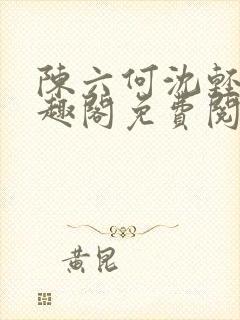 陳六何沈輕
趣閣免費閱
黃昆